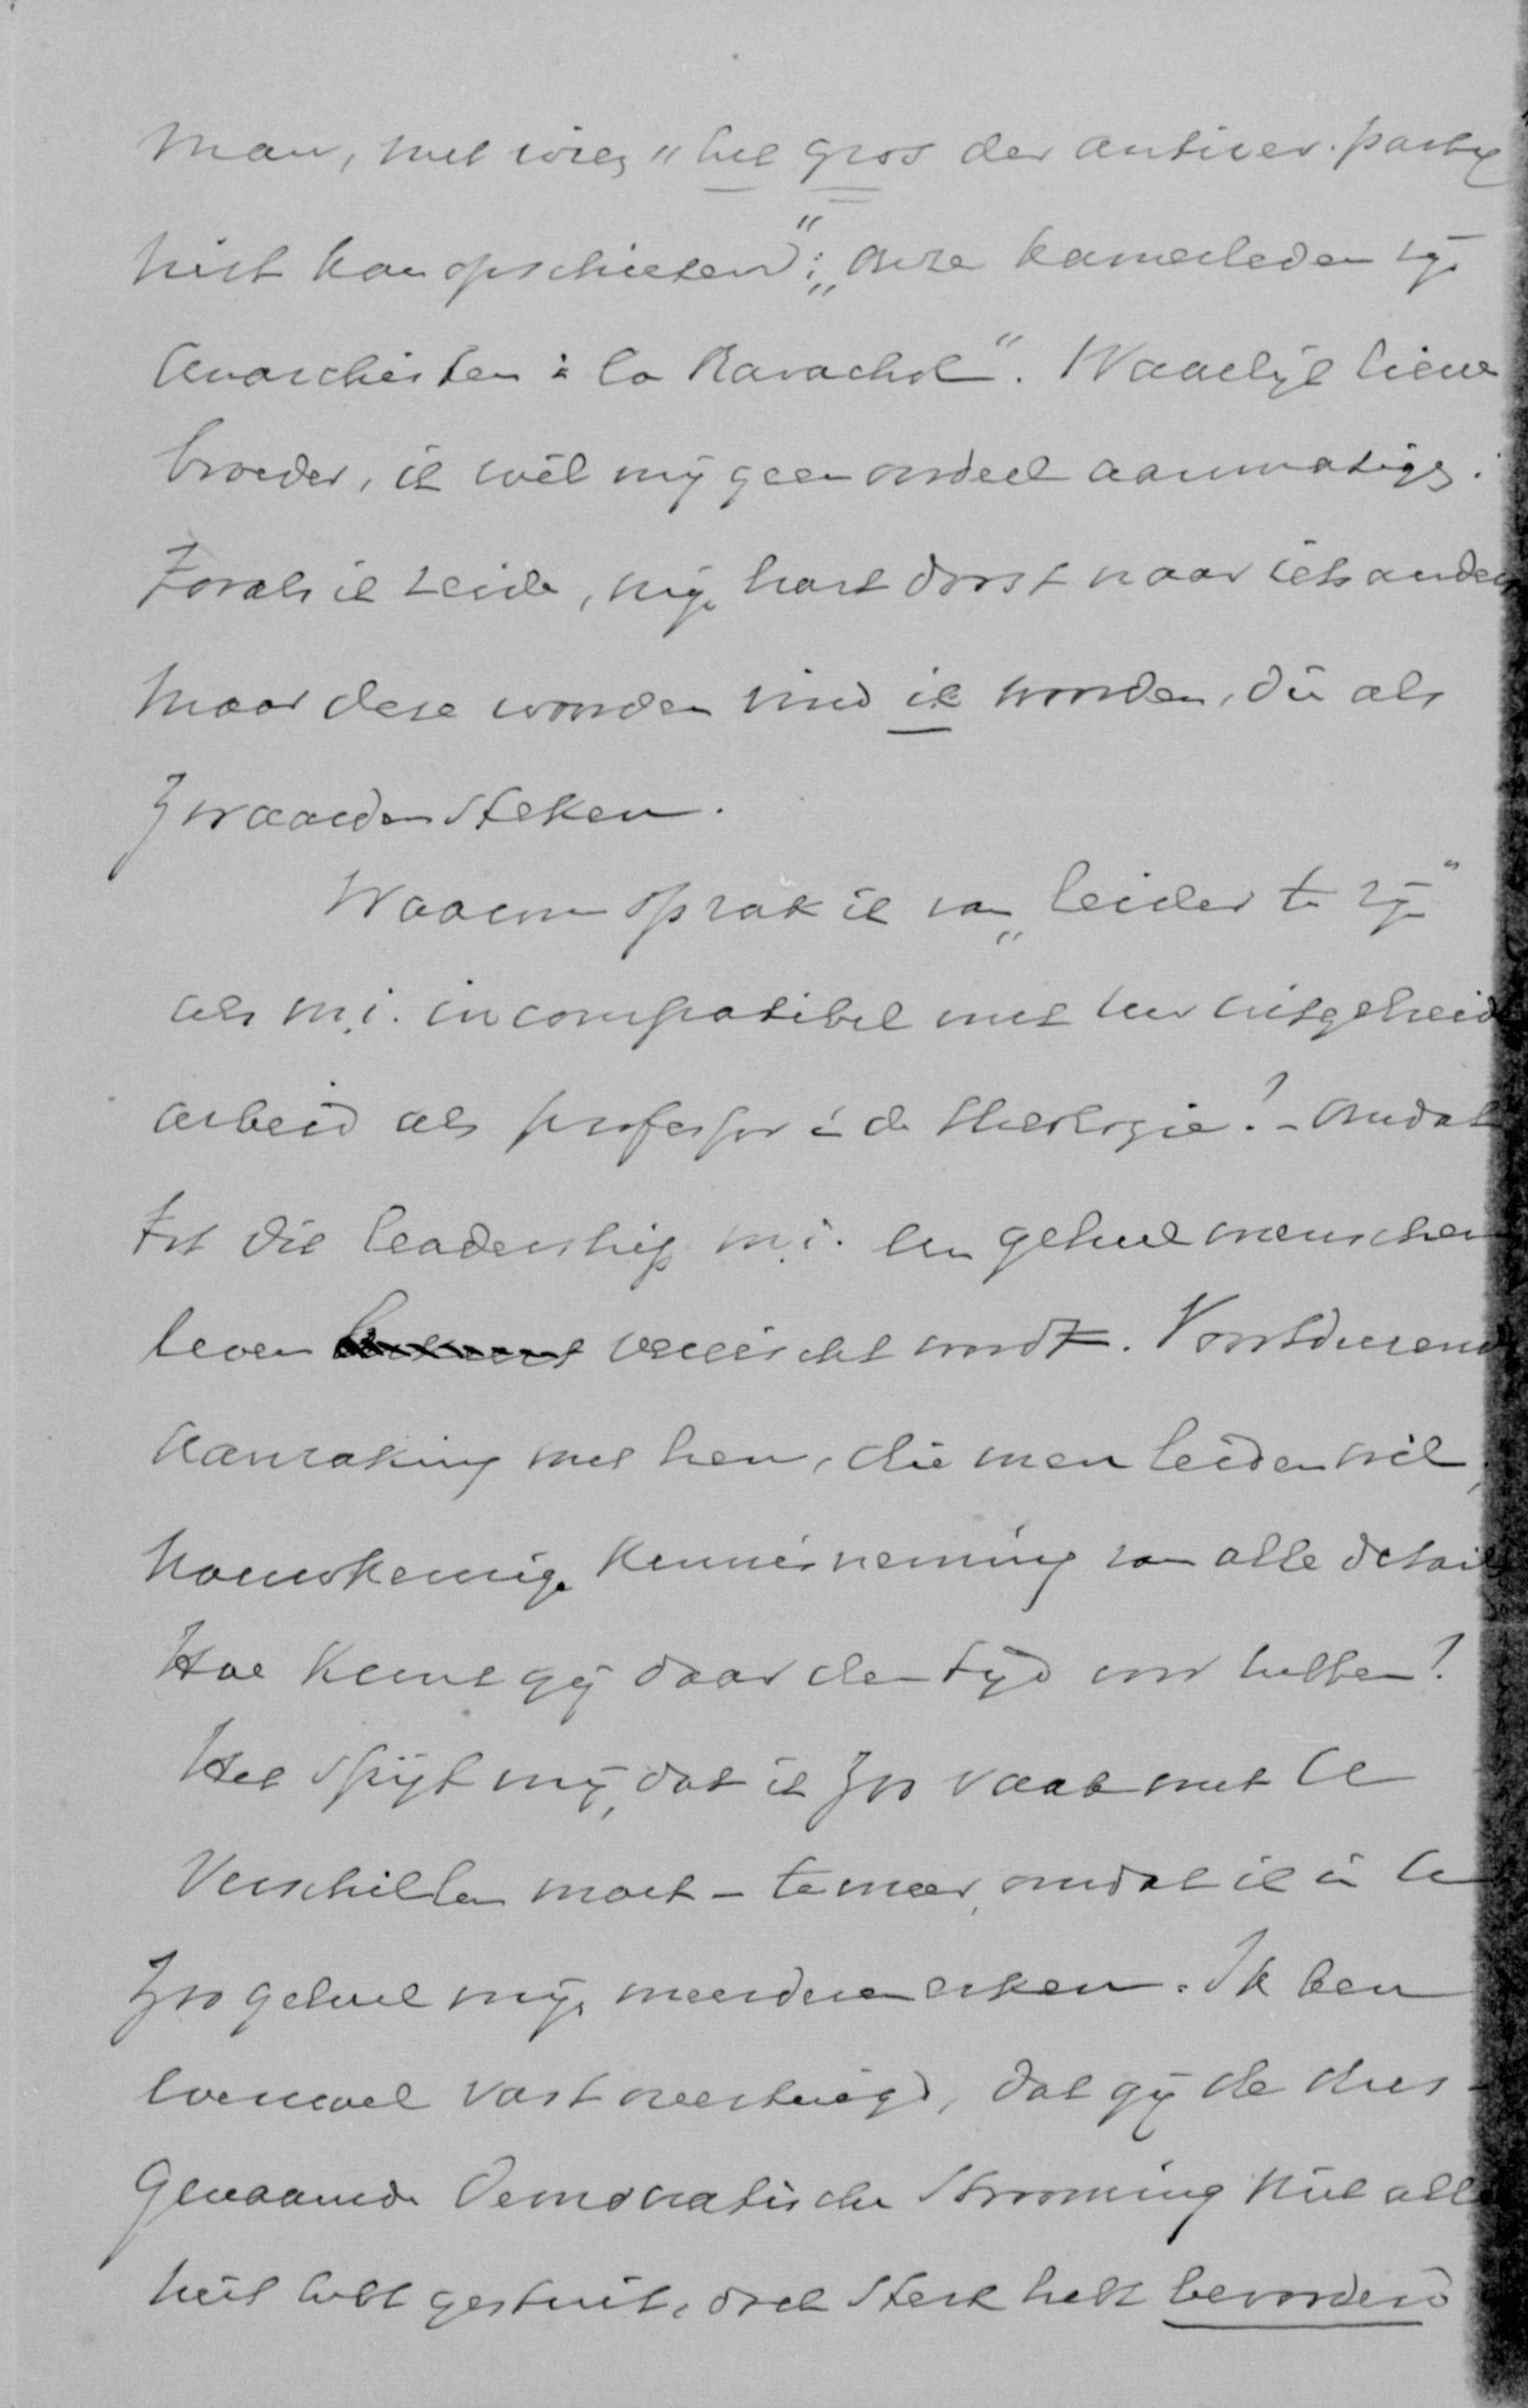 man, met wien „het gros der antirev. party
niet kan opschieten”; „onze kamerleden zijn
Anarchisten à la Ravachol”. Waarlijk lieve
broeder, ik wil mij geen oordeel aanmatigen:
Zooals ik zeide, mijn hart dorst naar iets anders
maar deze woorden vind ik wonden, die als
zwaarden steken.
Waarom sprak ik van „leider te zijn”
als m.i. incompatibel met uw uitgebreide
arbeid als professor in de theologie? – Omdat
tot die leadership m.i. een geheel menschen
leven vereischt wordt. Voortdurend
aanraking met hen, die men leiden wil,
nauwkeurige kennisneming van alle details
Hoe kunt gij daar den tijd voor hebben?
Het spijt mij, dat ik zoo vaak met U
verschillen moet – te meer, omdat ik in U
zoo geheel mijn meerdere erken. Ik ben
evenwel vast overtuigd, dat gij de dus-
genaamde Democratische Strooming niet all
niet hebt gestuit, doch sterk hebt bevorderd